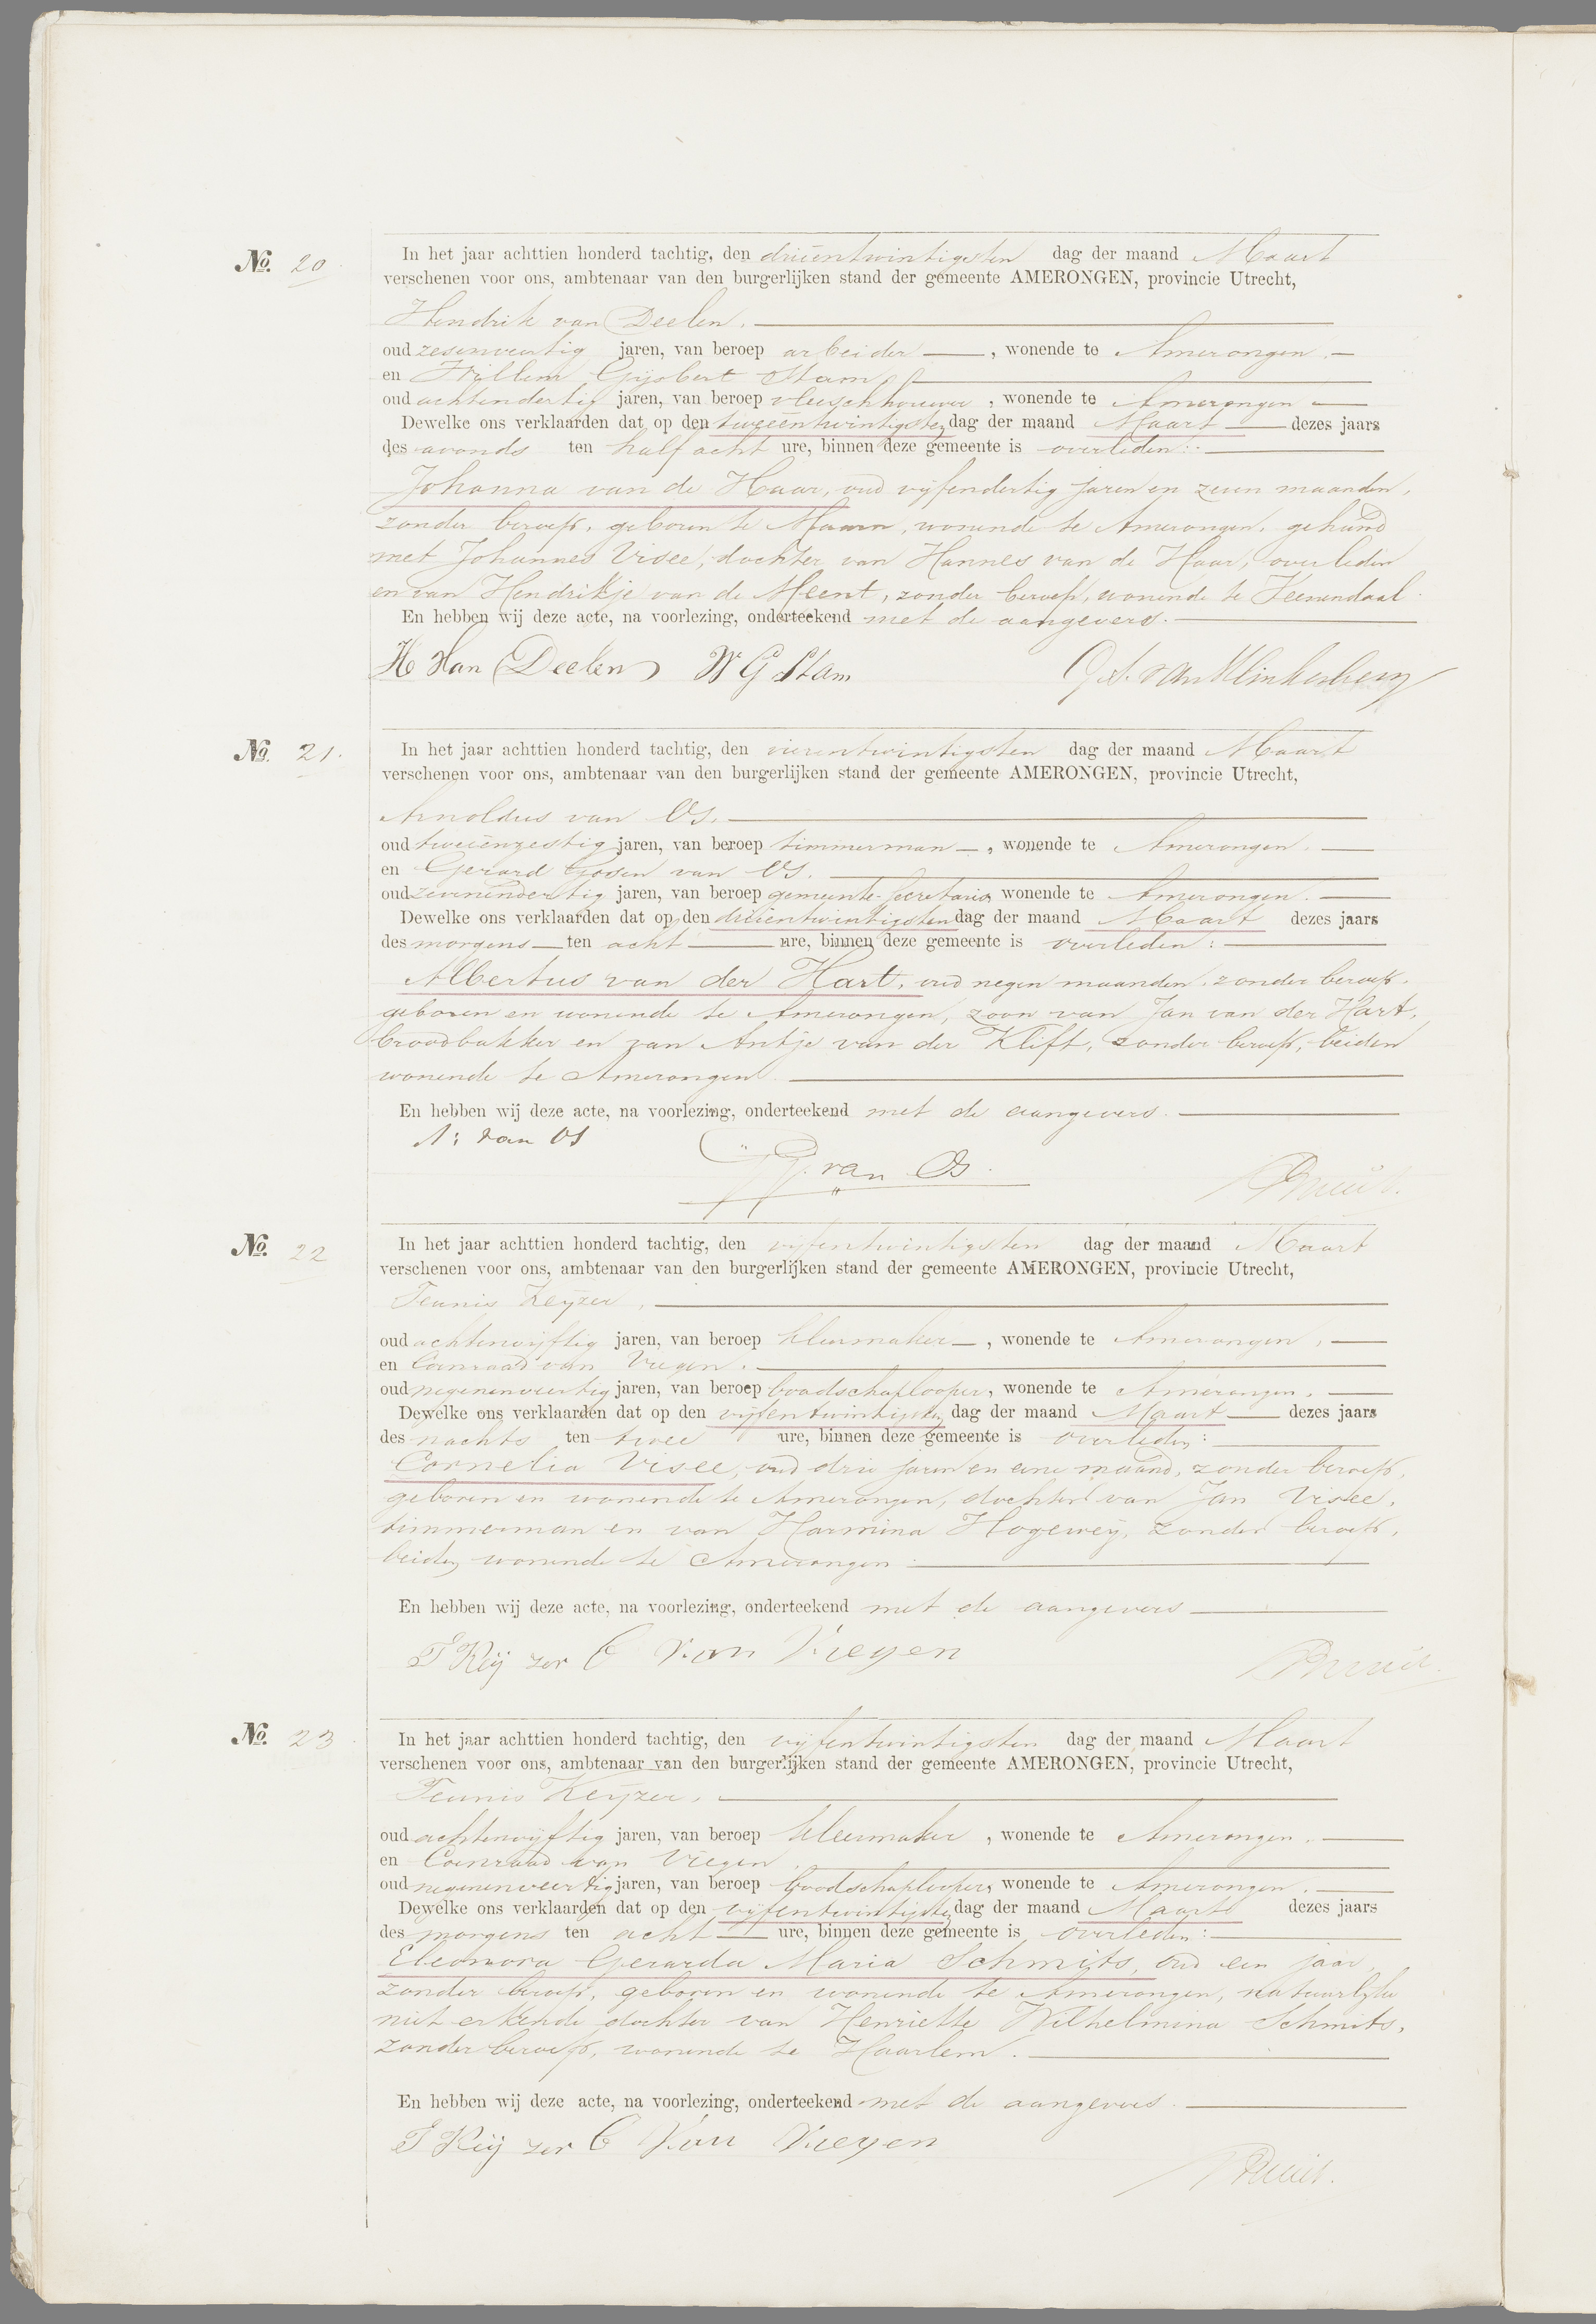 No. 20.
In het jaar achttien honderd tachtig, den drieëntwintigsten dag der maand Maart
verschenen voor ons, ambtenaar van den burgerlijken stand der gemeente AMERONGEN, provincie Utrecht,
Hendrik van Deelen.
oud zesenveertig jaren, van beroep arbeider, wonende te Amerongen.
en Willem Gijsbert Stam
oud achtendertig jaren, van beroep vleeschhouwer, wonende te Amerongen
Dewelke ons verklaarden dat op den tweeëntwintigsten dag der maand Maart dezes jaars
des avonds ten half acht ure, binnen deze gemeente is overleden:
Johanna van de Haar, oud vijfendertig jaren en zeven maanden,
zonder beroep, geboren te Maarn, wonende te Amerongen, gehuwd
met Johannes Visee, dochter van Hannes van de Haar, overleden
en van Hendrikje van de Meent, zonder beroep, wonende te Veenendaal.
En hebben wij deze acte, na voorlezing, onderteekend met de aangevers.
H Van Deelen W G Stam
No. 21.
In het jaar achttien honderd tachtig, den vierentwintigsten dag der maand Maart
verschenen voor ons, ambtenaar van den burgerlijken stand der gemeente AMERONGEN, provincie Utrecht,
Arnoldus van Os.
oud tweeënzestig jaren, van beroep timmerman, wonende te Amerongen.
en Gerard Gosen van Os.
oud zevenendertig jaren, van beroep gemeente-secretaris, wonende te Amerongen.
Dewelke ons verklaarden dat op den drieëntwintigsten dag der maand Maart dezes jaars
des morgens ten acht ure, binnen deze gemeente is overleden:
Albertus van der Hart, oud negen maanden, zonder beroep,
geboren en wonende te Amerongen, zoon van Jan van der Hart,
broodbakker en van Antje van der Klift, zonder beroep, beiden
wonende te Amerongen.
En hebben wij deze acte, na voorlezing, onderteekend met de aangevers.
A: van Os
G. van Os.
No. 22
In het jaar achttien honderd tachtig, den vijfentwintigsten dag der maand Maart
verschenen voor ons, ambtenaar van den burgerlijken stand der gemeente AMERONGEN, provincie Utrecht,
Teunis Keijzer,
oud achtenvijftig jaren, van beroep kleermaker, wonende te Amerongen,
en Coenraad van Viegen.
oud negenenveertig jaren, van beroep boodschaplooper, wonende te Amerongen.
Dewelke ons verklaarden dat op den vijfentwintigsten dag der maand Maart dezes jaars
des nachts ten twee ure, binnen deze gemeente is overleden:
Cornelia Visee, oud drie jaren en eene maand, zonder beroep,
geboren en wonende te Amerongen, dochter van Jan Visee,
timmerman en van Harmina Hogeweij, zonder beroep,
beiden wonende te Amerongen.
En hebben wij deze acte, na voorlezing, onderteekend met de aangevers
T Keij zer C Van Viegen
No. 23.
In het jaar achttien honderd tachtig, den vijfentwintigsten dag der maand Maart
verschenen voor ons, ambtenaar van den burgerlijken stand der gemeente AMERONGEN, provincie Utrecht,
Teunis Keijzer,
oud achtenvijftig jaren, van beroep kleermaker, wonende te Amerongen.
en Coenraad van Viegen
oud negenenveertig jaren, van beroep boodschaplooper, wonende te Amerongen.
Dewelke ons verklaarden dat op den vijfentwintigsten dag der maand Maart dezes jaars
des morgens ten acht ure, binnen deze gemeente is overleden:
Eleonora Gerarda Maria Schmits, oud een jaar,
zonder beroep, geboren en wonende te Amerongen, natuurlijke
niet erkende dochter van Henriette Wilhelmina Schmits,
zonder beroep, wonende te Haarlem.
En hebben wij deze acte, na voorlezing, onderteekend met de aangevers.
T Keij zer C Van Viegen